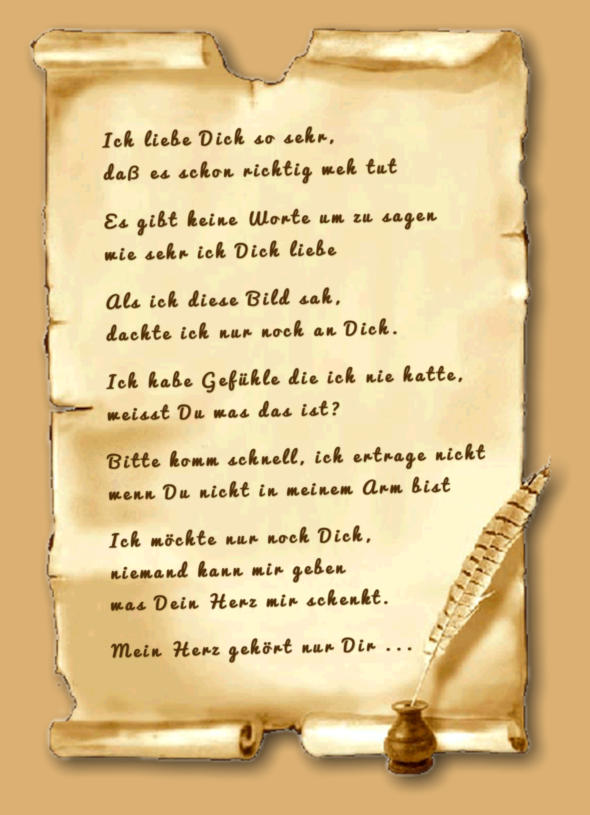 Ich liebe Dich so sehr,
daß es schon richtig weh tut
Es gibt keine Worte um zu sagen
wie sehr ich Dich liebe
Als ich diese Bild sah,
dachte ich nur noch an Dich.
Ich habe Gefühle die ich nie hatte,
weisst Du was das ist?
Bitte komm schnell, ich ertrage nicht
wenn Du nicht in meinem Arm bist
Ich möchte nur noch Dich,
niemand kann mir geben
was Dein Herz mir schenkt.
Mein Herz gehört nur Dir ...